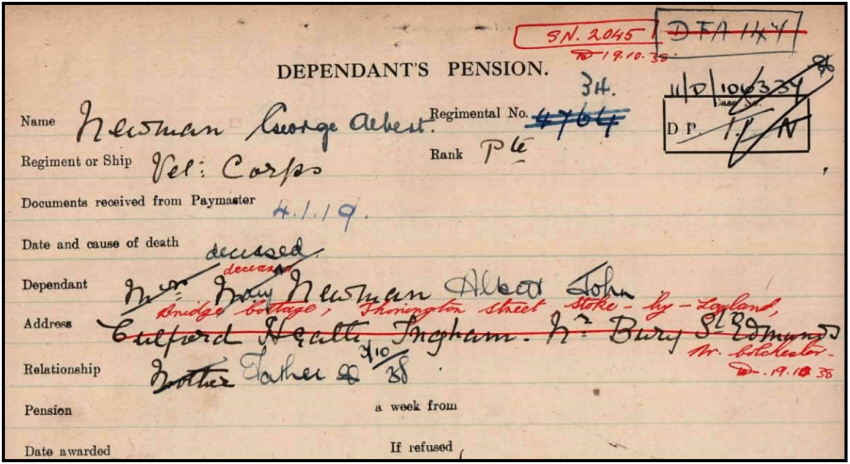 S.N. 2045 DFA 147
D 19.10.38.
DEPENDANT'S PENSION.
34. 11/D/106334
Case No.
Name Newman George Albert. Regimental No. 4764
D P. N
Regiment or Ship Vet: Corps Rank Pte
Documents received from Paymaster 4.1.19.
Date and cause of death
deceased.
deceased
Dependant Mrs Mary Newman Albert John
Bridge Cottage, Thorington Street Stoke-by-Layland,
Address Culford Heath Ingham. Nr Bury St Edmunds
Nr. Colchester.
D. 19.10.38
Relationship Mother Father 3/10/38
Pension a week from
Date awarded If refused